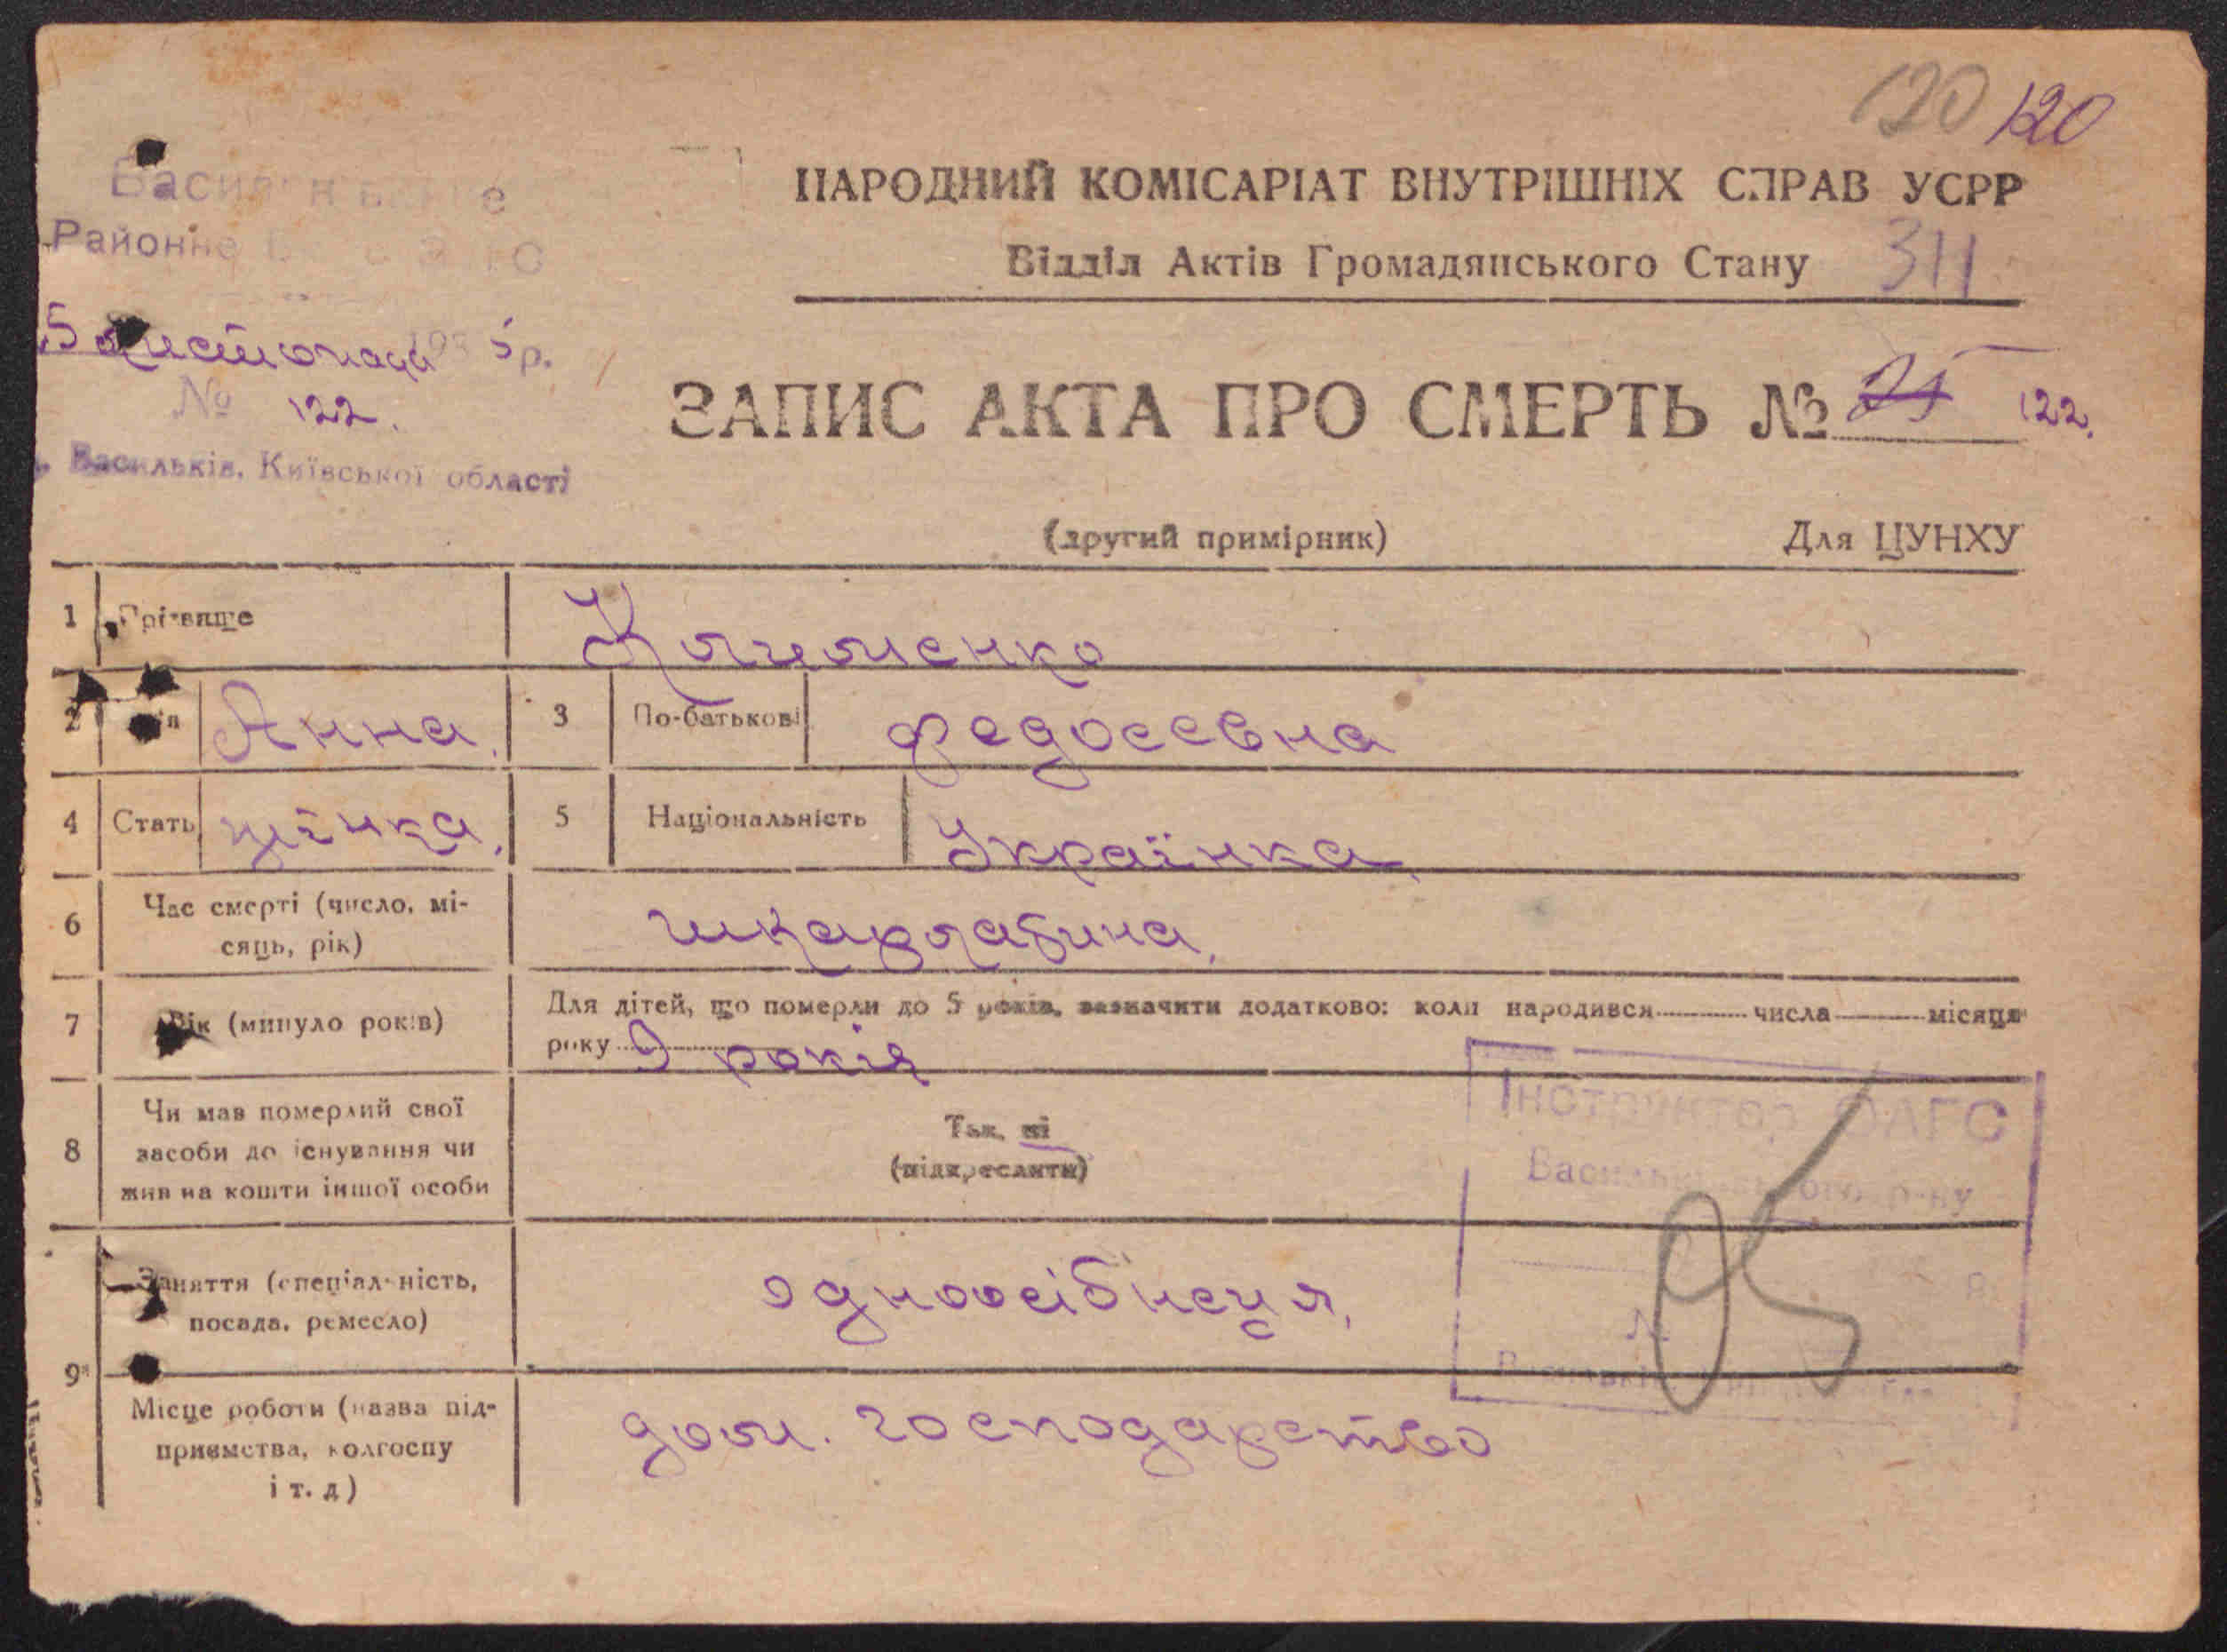 120 120
Районне
НАРОДНИЙ КОМІСАРІАТ ВНУТРІШНІХ СПРАВ УСРР
Відділ Актів Громадянського Стану 311
5 листопада 1935 р.
№ 122.
ЗАПИС АКТА ПРО СМЕРТЬ № 25 122.
Васильків, Київської області
(другий примірник) Для ЦУНХУ
1 Прізвище
2 Анна, 3 По-батькові Федосеевна
4 Стать жінка, 5 Національність Українка,
6 Час смерті (число, мі-
сяць, рік) шкарлатина,
7 Вік (минуло років) Для дітей, що померли до 5 років, зазначити додатково: коли народився числа місяця
року 9 років
8 Чи мав померлий свої
засоби до існування чи
жив на кошти іншої особи
Так, ні
(підкреслити)
Інструктор ОАГС
9 Заняття (спеціальність,
посада, ремесло)
одноосібнеця,
Місце роботи (назва під-
приємства, колгоспу
і т. д)
дом. господарство